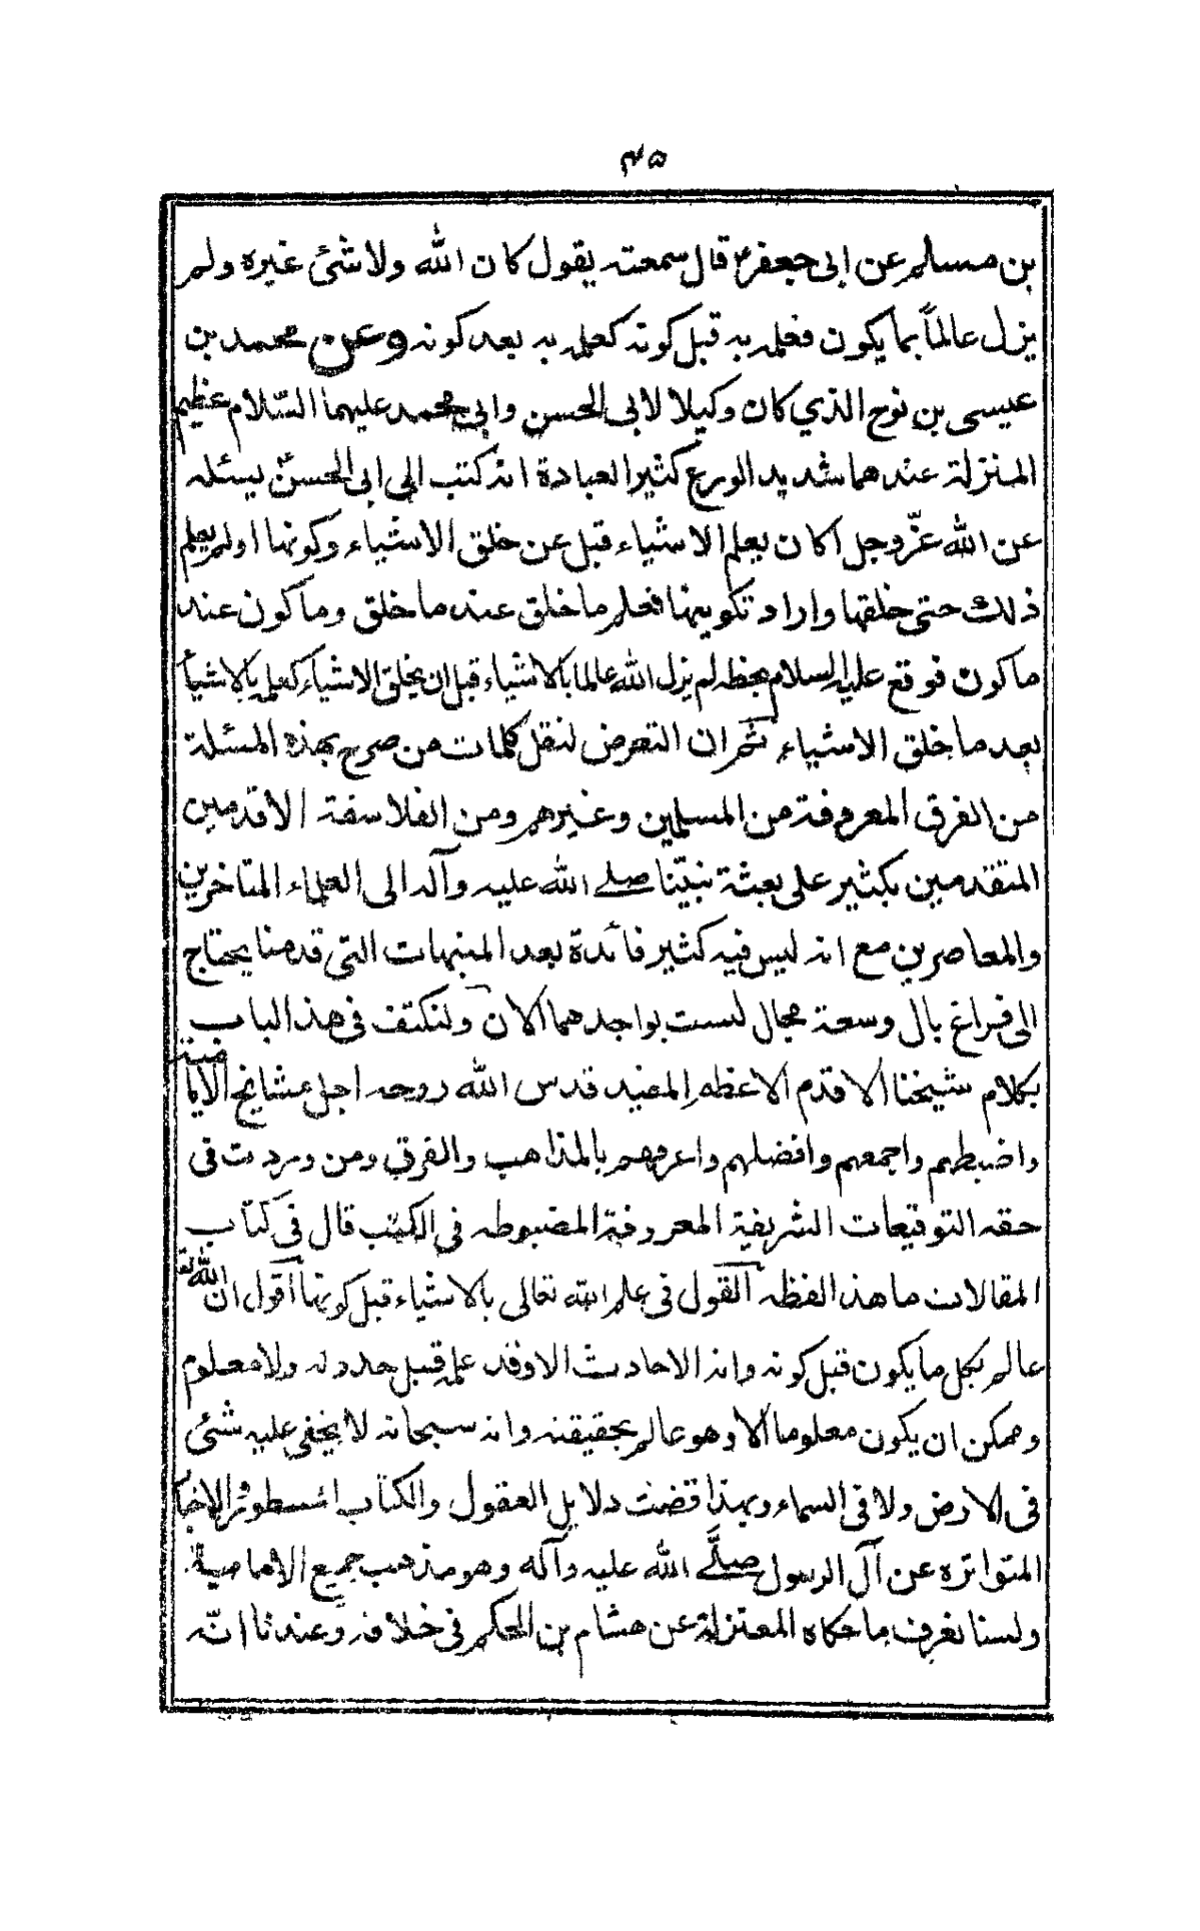 ٣٥
بن مسلم عن ابى جعفرؑ قال سمعته يقول كان الله ولا شئ غيره ولم
يزل عالماً بما يكون فعلمه به قبل كونه كعلمه به بعد كونه وعن محمد بن
عيسى بن نوح الذي كان وكيلا لابى الحسن وابى محمد عليهما السّلام عظيم
المنزلة عندهما شديد الورع كثير العبادة انه كتب الى ابى الحسنؑ يسئله
عن الله عزّ وجل اكان يعلم الاشياء قبل عن خلق الاشياء وكونها اولم يعلم
ذلك حتى خلقها واراد تكوينها فعلم ما خلق عند ما خلق وما كون عند
ما كون فوقع عليه السلام بخطه لم يزل الله عالما بالاشياء قبل ان يخلق الاشياء كعلمه بالاشيأ
بعد ما خلق الاشياء ثم ان التعرض لنقل كلمات من صرح بهذه المسئلة
من الفرق المعروفة من المسلمين وغيرهم ومن الفلاسفة الاقدمين
المتقدمين بكثير على بعثة نبيّنا صلے الله عليه وآله الى العلماء المتاخرين
والمعاصرين مع انه ليس فيه كثير فائدة بعد المنبهات التى قدمنا يحتاج
الى فراغ بال وسعة مجال لست بواجدهما الان ولنكتف فى هذ الباب
بكلام شيخنا الاقدم الاعظم المفيد قدس الله روحه اجل مشايخ الامامية
واضبطهم واجمعهم وافضلهم واعرفهم بالمذاهب والفرق ومن وردت فى
حقه التوقيعات الشريفة المعروفة المضبوطه فى الكتب قال فى كتاب
المقالات ما هذ الفظه القول فى علم الله تعالى بالاشياء قبل كونها اقول ان الله تع
عالم بكل ما يكون قبل كونه وانه الاحادث الا وقد علمه قبل حدوثه ولا معلوم
وممكن ان يكون معلوما الا وهو عالم بحقيقته وانه سبحانه لا يخفى عليه شئ
فى الارض ولا فى السماء وبهذا قضت دلايل العقول والكتاب المسطور والاخبار
المتواتره عن آل الرسول صلَّے الله عليه وآله وهو مذهب جميع الامامية
ولسنا نعرف ما حكاه المعتزلة عن هشام بن الحكم فى خلافه وعندنا انّه